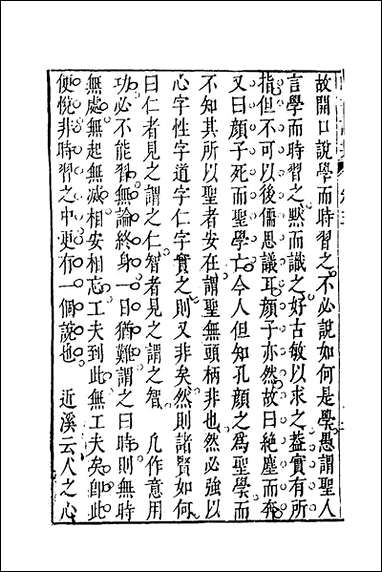 故開口說學而時習之不必說如何是學愚謂聖人
言學而時習之黙而識之好古敏以求之葢實有所
指但不可以後儒思議耳顔子亦然故曰絶塵而奔
又曰顔子死而聖學亡今人但知孔顔之爲聖學而
不知其所以聖者安在謂聖無頭柄非也然必強以
心字性字道字仁字實之則又非矣然則諸賢如何
曰仁者見之謂之仁智者見之謂之智　凡作意用
功必不能習無論終身一日猶難謂之曰時則無時
無處無起無滅相安相忘工夫到此無工夫矣卽此
便悅非時習之中更有一個說也　近溪云人之心